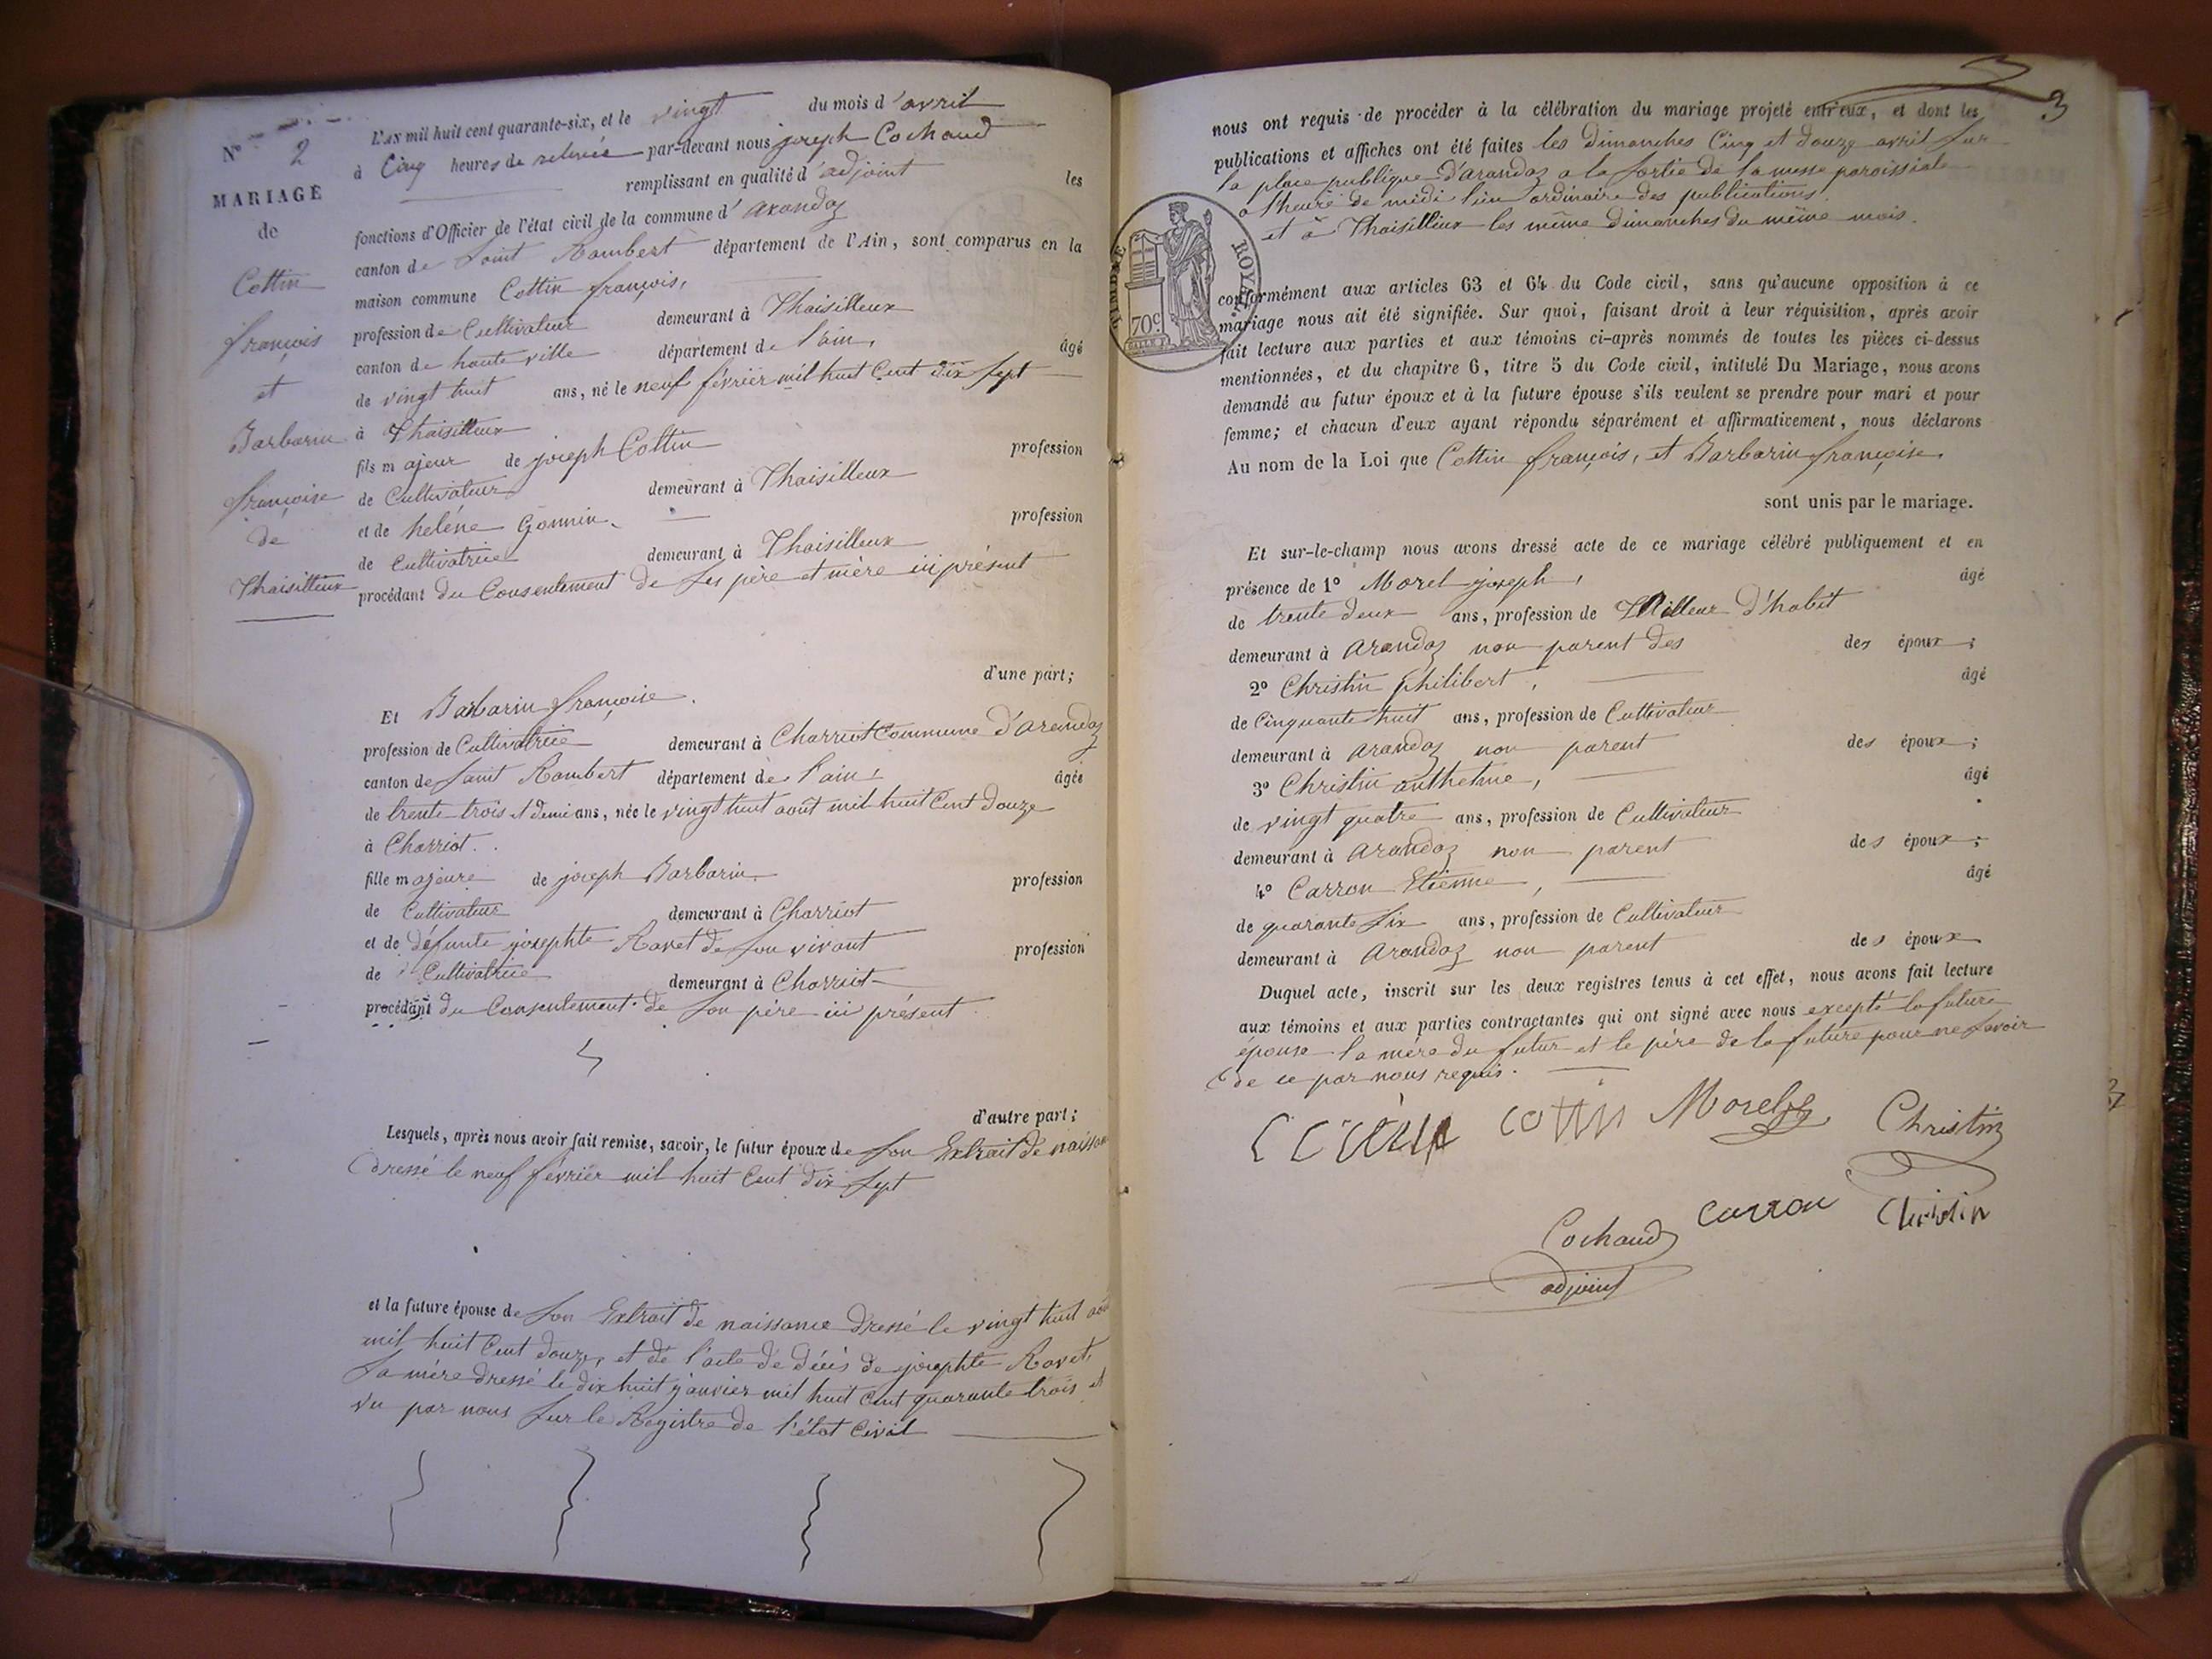 N° 2
MARIAGE
de
Cottin
françois
et
Barbarin
françoise
de
Thaisillieux
L'AN mil huit cent quarante-six, et le vingt du mois d'avril
à Cinq heures de relevée par-devant nous joseph Cochaud
remplissant en qualité d'adjoint les
fonctions d'Officier de l'état civil de la commune d'arandaz
canton de Saint Rambert département de l'Ain, sont comparus en la
maison commune Cottin françois,
profession de Cultivateur demeurant à Thaisillieux
canton de haute ville département de l'ain, âgé
de vingt huit ans, né le neuf février mil huit Cent dix sept
à Thaisillieux
fils majeur de joseph Cottin profession
de Cultivateur demeurant à Thaisillieux
et de heléne Gonnin profession
de Cultivatrice demeurant à Thaisillieux
procédant du Consentement de ses père et mère ici présent
d'une part;
Et Barbarin françoise.
profession de Cultivatrice demeurant à Charriot Commune d'arandaz
canton de Saint Rambert département de l'ain, âgée
de trente trois et demi ans, née le vingt huit août mil huit Cent douze
à Charriot.
fille majeure de joseph Barbarin profession
de Cultivateur demeurant à Charriot
et de défunte josephte Ravet de son vivant profession
de Cultivatrice demeurant à Charriot
procédant du Consentement de son père ici présent
d'autre part;
Lesquels, après nous avoir fait remise, savoir, le futur époux de son Extrait de naissan
dressé le neuf février mil huit Cent dix sept
et la future épouse de son Extrait de naissance dressé le vingt huit aoû
mil huit Cent douze, et de l'acte de décès de josephte Ravet,
sa mère dressé le dix huit janvier mil huit Cent quarante trois et
vu par nous sur le Registre de l'état Civil
3
nous ont requis de procéder à la célébration du mariage projeté entr'eux, et dont les
publications et affiches ont été faites les dimanches Cinq et douze avril sur
la place publique d'arandaz a la sortie de la messe paroissiale
a l'heure de midi lieu ordinaire des publications
et à Thaisillieux les même dimanches du même mois.
TIMBRE ROYAL
70c
conformément aux articles 63 et 64 du Code civil, sans qu'aucune opposition à ce
mariage nous ait été signifiée. Sur quoi, faisant droit à leur réquisition, après avoir
fait lecture aux parties et aux témoins ci-après nommés de toutes les pièces ci-dessus
mentionnées, et du chapitre 6, titre 5 du Code civil, intitulé Du Mariage, nous avons
demandé au futur époux et à la future épouse s'ils veulent se prendre pour mari et pour
femme; et chacun d'eux ayant répondu séparément et affirmativement, nous déclarons
Au nom de la Loi que Cottin françois, et Barbarin françoise.
sont unis par le mariage.
Et sur-le-champ nous avons dressé acte de ce mariage célébré publiquement et en
présence de 1° Morel joseph, âgé
de trente deux ans, profession de Tailleur d'habit
demeurant à arandaz non parent des des époux;
2° Christin philibert, âgé
de Cinquante huit ans, profession de Cultivateur
demeurant à arandaz non parent des époux;
3° Christin anthelme, âgé
de vingt quatre ans, profession de Cultivateur
demeurant à arandaz non parent des époux;
4° Carron Etienne, âgé
de quarante six ans, profession de Cultivateur
demeurant à arandaz non parent des époux
Duquel acte, inscrit sur les deux registres tenus à cet effet, nous avons fait lecture
aux témoins et aux parties contractantes qui ont signé avec nous excepté la future
épouse la mère du futur et le père de la future pour ne savoir
de ce par nous requis.
cottin Morel Christin
Cochaud carron Christin
adjoint